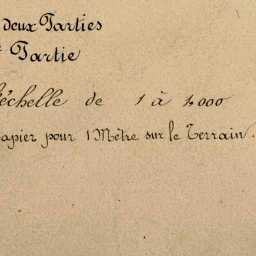 deux Parties
Partie
échelle de 1 à 1000
papier pour 1 Mètre sur le Terrain.